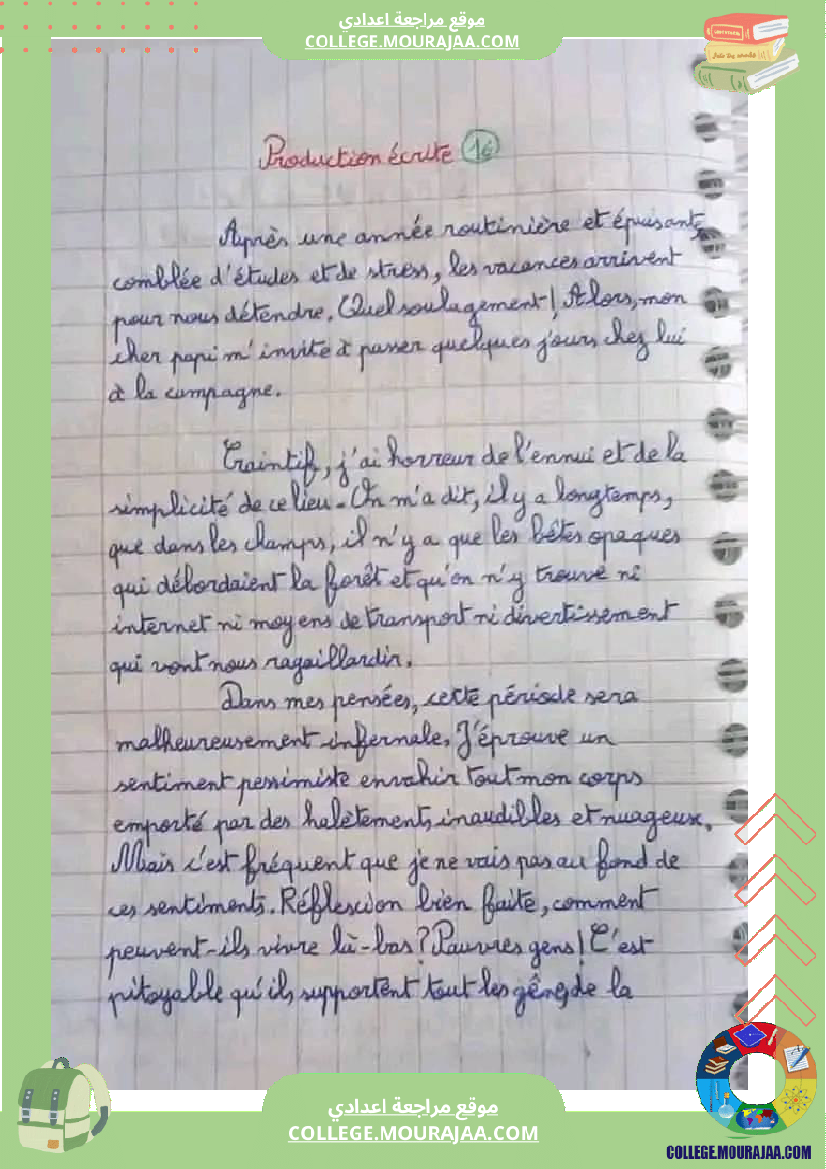 موقع مراجعة اعدادي
COLLEGE.MOURAJAA.COM
Production écrite 16
Après une année routinière et épuisante,
comblée d'études et de stress, les vacances arrivent
pour nous détendre. Quel soulagement! Alors, mon
cher papi m'invite à passer quelques jours chez lui
à la campagne.
Craintif, j'ai horreur de l'ennui et de la
simplicité de ce lieu. On m'a dit, il y a longtemps,
que dans les champs, il n'y a que les bêtes opaques
qui débordaient la forêt et qu'on n'y trouve ni
internet ni moyens de transport ni divertissement
qui vont nous ragaillardir.
Dans mes pensées, cette période sera
malheureusement infernale. J'éprouve un
sentiment pessimiste envahir tout mon corps
emporté par des halètements inaudibles et nuageux.
Mais c'est fréquent que je ne vais pas au fond de
ces sentiments. Réflexion bien faite, comment
peuvent-ils vivre là-bas? Pauvres gens! C'est
pitoyable qu'ils supportent tout les gênes de la
موقع مراجعة اعدادي
COLLEGE.MOURAJAA.COM
COLLEGE.MOURAJAA.COM